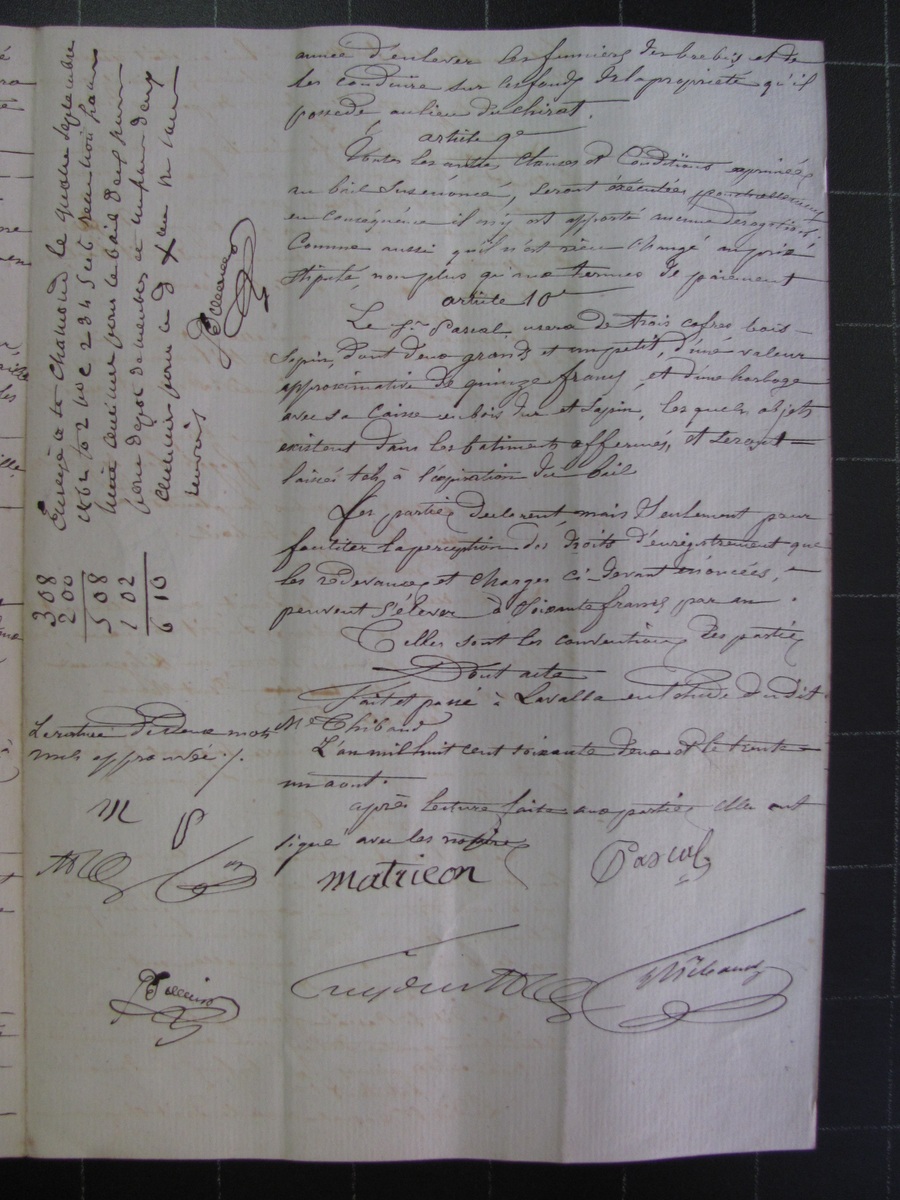 année d'enlever les fumiers des brebis et de
les conduire sur les fonds de la propriété qu'il
possède au lieu du chirat.
article 9e
Toutes les autres clauses et conditions exprimées
au bail susénoncé, seront exécutées
en conséquence il n'y est apporté aucune dérogation,
comme aussi qu'il n'est rien changé au prix
stipulé, non plus qu'aux termes de paiement
article 10e
Le sr. Pascal usera de trois cofres bois
sapin, dont deux grands et un petit, d'une valeur
approximative de quinze francs, et d'une horloge
avec sa caisse en bois dur et sapin, lesquels objets
existent dans les batiments affermés, et seront
laissés tels à l'expiration du bail
Les parties déclarent, mais seulement pour
faciliter la perception des droits d'enregistrement que
les redevances et charges ci-devant énoncées,
peuvent s'élever à soixante francs par an.
Telles sont les conventions des parties
Dont acte
Fait et passé à Lavalla en l'étude du dit
Me Thibaud
L'an mil huit cent soixante deux et le trente
un aout.
après lecture faite aux parties elles ont
signé avec les notaires
matricon
Pascal
Thibaud
Enregé à St Chamond le quatre septembre
1862 fo 2 Vo C 2 3 4 5 et 6
pour le bail deux
308
200
508
102
610
La rature de deux mots
nuls approuvée ./.
M
P